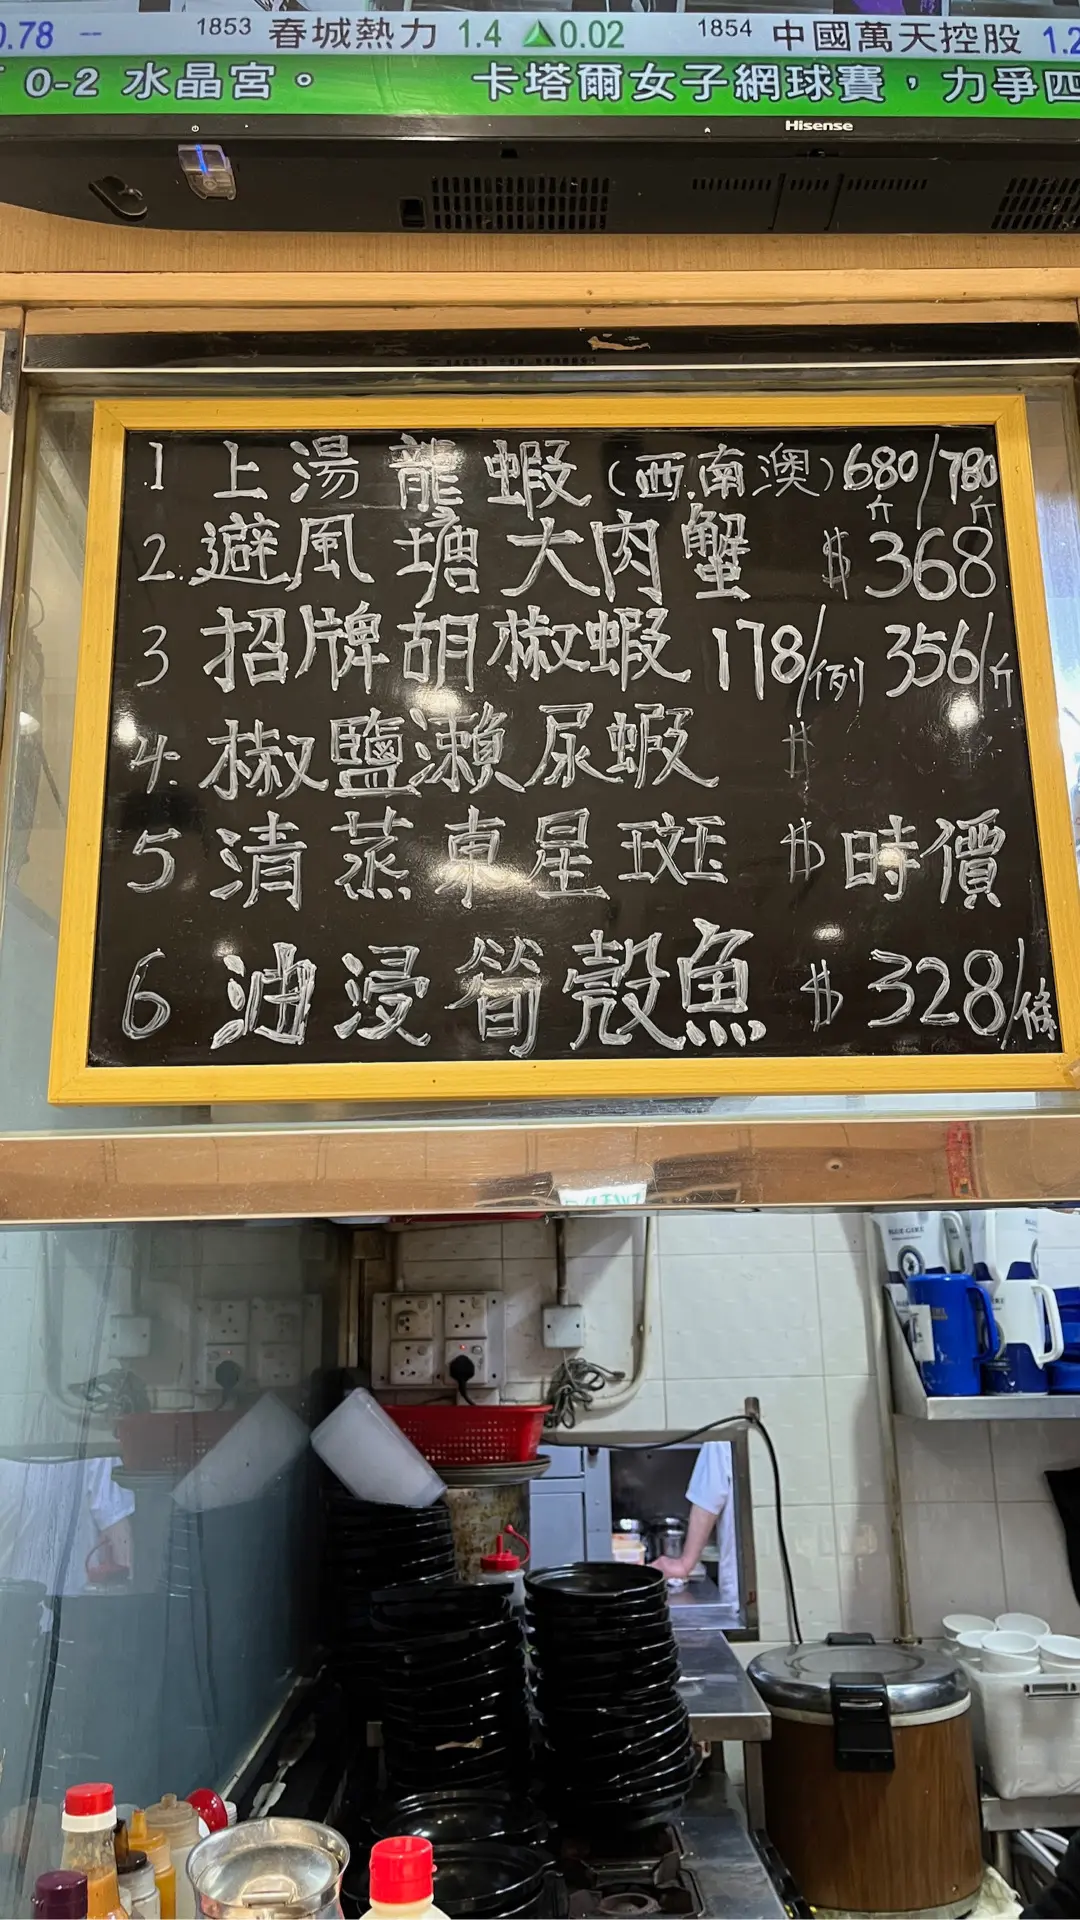 0.78 -- 1853 春城熱力 1.4 ▲0.02 1854 中國萬天控股 1.2
0-2 水晶宮。 卡塔爾女子網球賽，力爭四
Hisense
1 上湯龍蝦（西.南澳）680/斤 780/斤
2. 避風塘大肉蟹 $368
3 招牌胡椒蝦 178/例 356/斤
4. 椒鹽瀨尿蝦 $
5 清蒸東星斑 $時價
6 油浸筍殼魚 $328/條